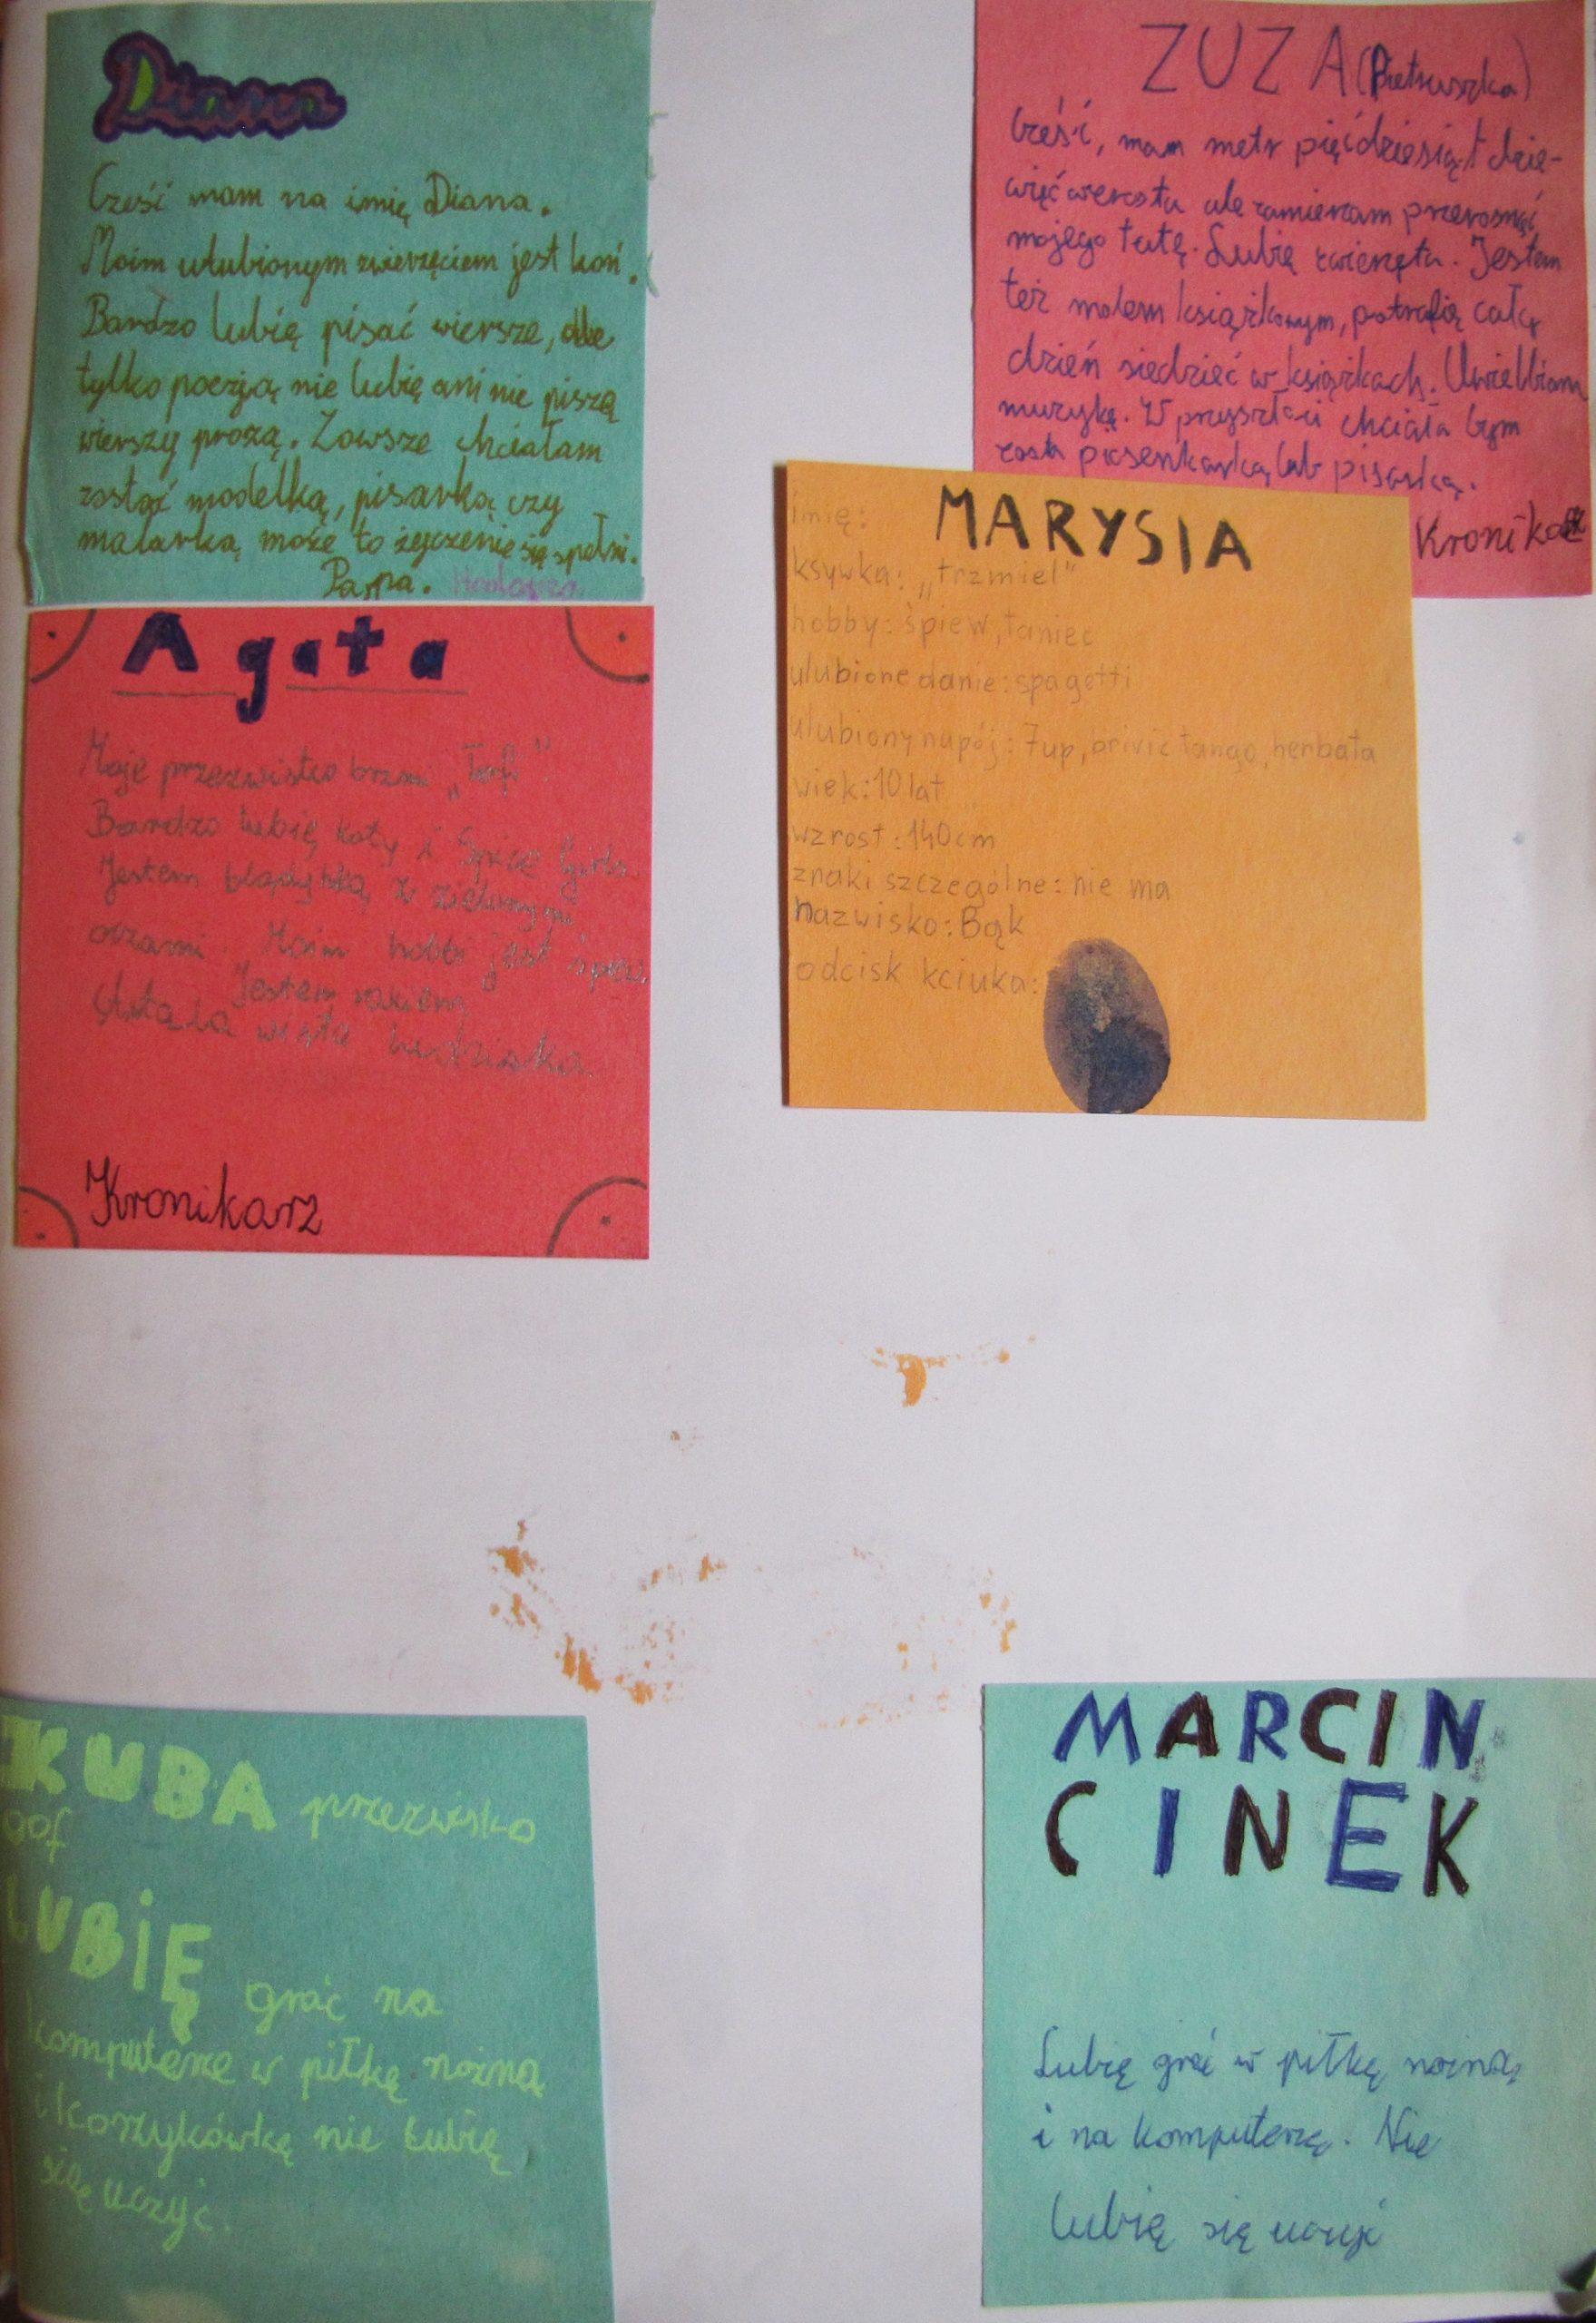 Diana
Cześć mam na imię Diana.
Moim ulubionym zwierzęciem jest koń.
Bardzo lubię pisać wiersze, ale
tylko poezją nie lubię ani nie piszą
wierszy prozą. Zawsze chciałam
zostać modelką, pisarką czy
malarką może to życzenie się spełni.
Papa.
ZUZA (Pietruszka)
Cześć, mam metr pięćdziesiąt dzie-
więć wzrostu ale zamierzam przerosnąć
mojego tatę. Lubię zwierzęta. Jestem
też molem książkowym, potrafię cały
dzień siedzieć w książkach. Uwielbiam
muzykę. W przyszłości chciała bym
zostać piosenkarką lub pisarką.
Kronika
MARYSIA
imię:
ksywka: „trzmiel"
hobby: śpiew, taniec
ulubione danie: spagetti
ulubiony napój: 7up, brivic tango, herbata
wiek: 10 lat
wzrost: 140cm
znaki szczególne: nie ma
nazwisko: Bąk
odcisk kciuka:
Agata
Moje przezwisko brzmi „Tofi"
Bardzo lubię koty i Spice Girls.
Jestem z zielonymi
oczami. Moim hobbi jest śpiew.
Jestem
wisła
Kronikarz
KUBA przezwisko
gof
LUBIĘ grać na
komputerze w piłkę nożną
i koszykówkę nie lubię
się uczyć.
MARCIN
CINEK
Lubię grać w piłkę nożną
i na komputerzę. Nie
lubię się uczyć